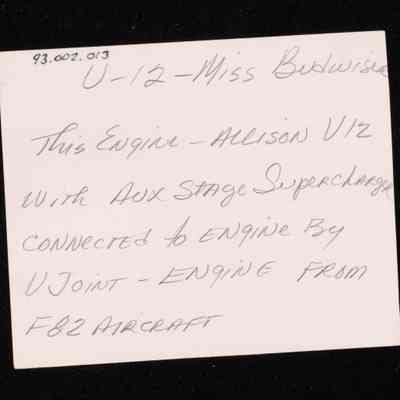 93.002.013
U-12-Miss Budwiser
This Engine - ALLISON V12
with Aux Stage Supercharger
connected to Engine By
U Joint - Engine From
F82 Aircraft